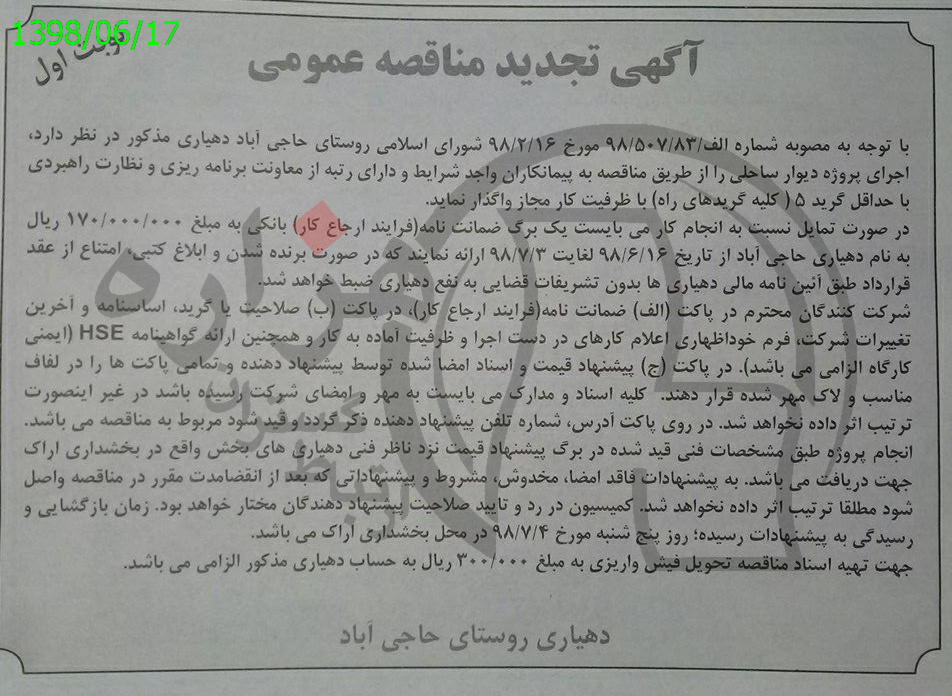 1398/06/17
نوبت اول
آگهی تجدید مناقصه عمومی
با توجه به مصوبه شماره الف/۹۸/۵۰۷/۸۳ مورخ ۹۸/۲/۱۶ شورای اسلامی روستای حاجی آباد دهیاری مذکور در نظر دارد،
اجرای پروژه دیوار ساحلی را از طریق مناقصه به پیمانکاران واجد شرایط و دارای رتبه از معاونت برنامه ریزی و نظارت راهبردی
با حداقل گرید ۵ ( کلیه گریدهای راه) با ظرفیت کار مجاز واگذار نماید.
در صورت تمایل نسبت به انجام کار می بایست یک برگ ضمانت نامه(فرایند ارجاع کار) بانکی به مبلغ ۱۷۰/۰۰۰/۰۰۰ ریال
به نام دهیاری حاجی آباد از تاریخ ۹۸/۶/۱۶ لغایت ۹۸/۷/۳ ارائه نمایند که در صورت برنده شدن و ابلاغ کتبی، امتناع از عقد
قرارداد طبق آئین نامه مالی دهیاری ها بدون تشریفات قضایی به نفع دهیاری ضبط خواهد شد.
شرکت کنندگان محترم در پاکت (الف) ضمانت نامه(فرایند ارجاع کار)، در پاکت (ب) صلاحیت یا گرید، اساسنامه و آخرین
تغییرات شرکت، فرم خوداظهاری اعلام کارهای در دست اجرا و ظرفیت آماده به کار و همچنین ارائه گواهینامه HSE (ایمنی
کارگاه الزامی می باشد). در پاکت (ج) پیشنهاد قیمت و اسناد امضا شده توسط پیشنهاد دهنده و تمامی پاکت ها را در لفاف
مناسب و لاک مهر شده قرار دهند. کلیه اسناد و مدارک می بایست به مهر و امضای شرکت رسیده باشد در غیر اینصورت
ترتیب اثر داده نخواهد شد. در روی پاکت آدرس، شماره تلفن پیشنهاد دهنده ذکر گردد و قید شود مربوط به مناقصه می باشد.
انجام پروژه طبق مشخصات فنی قید شده در برگ پیشنهاد قیمت نزد ناظر فنی دهیاری های بخش واقع در بخشداری اراک
جهت دریافت می باشد. به پیشنهادات فاقد امضا، مخدوش، مشروط و پیشنهاداتی که بعد از انقضامدت مقرر در مناقصه واصل
شود مطلقا ترتیب اثر داده نخواهد شد. کمیسیون در رد و تایید صلاحیت پیشنهاد دهندگان مختار خواهد بود. زمان بازگشایی و
رسیدگی به پیشنهادات رسیده؛ روز پنج شنبه مورخ ۹۸/۷/۴ در محل بخشداری اراک می باشد.
جهت تهیه اسناد مناقصه تحویل فیش واریزی به مبلغ ۳۰۰/۰۰۰ ریال به حساب دهیاری مذکور الزامی می باشد.
دهیاری روستای حاجی آباد